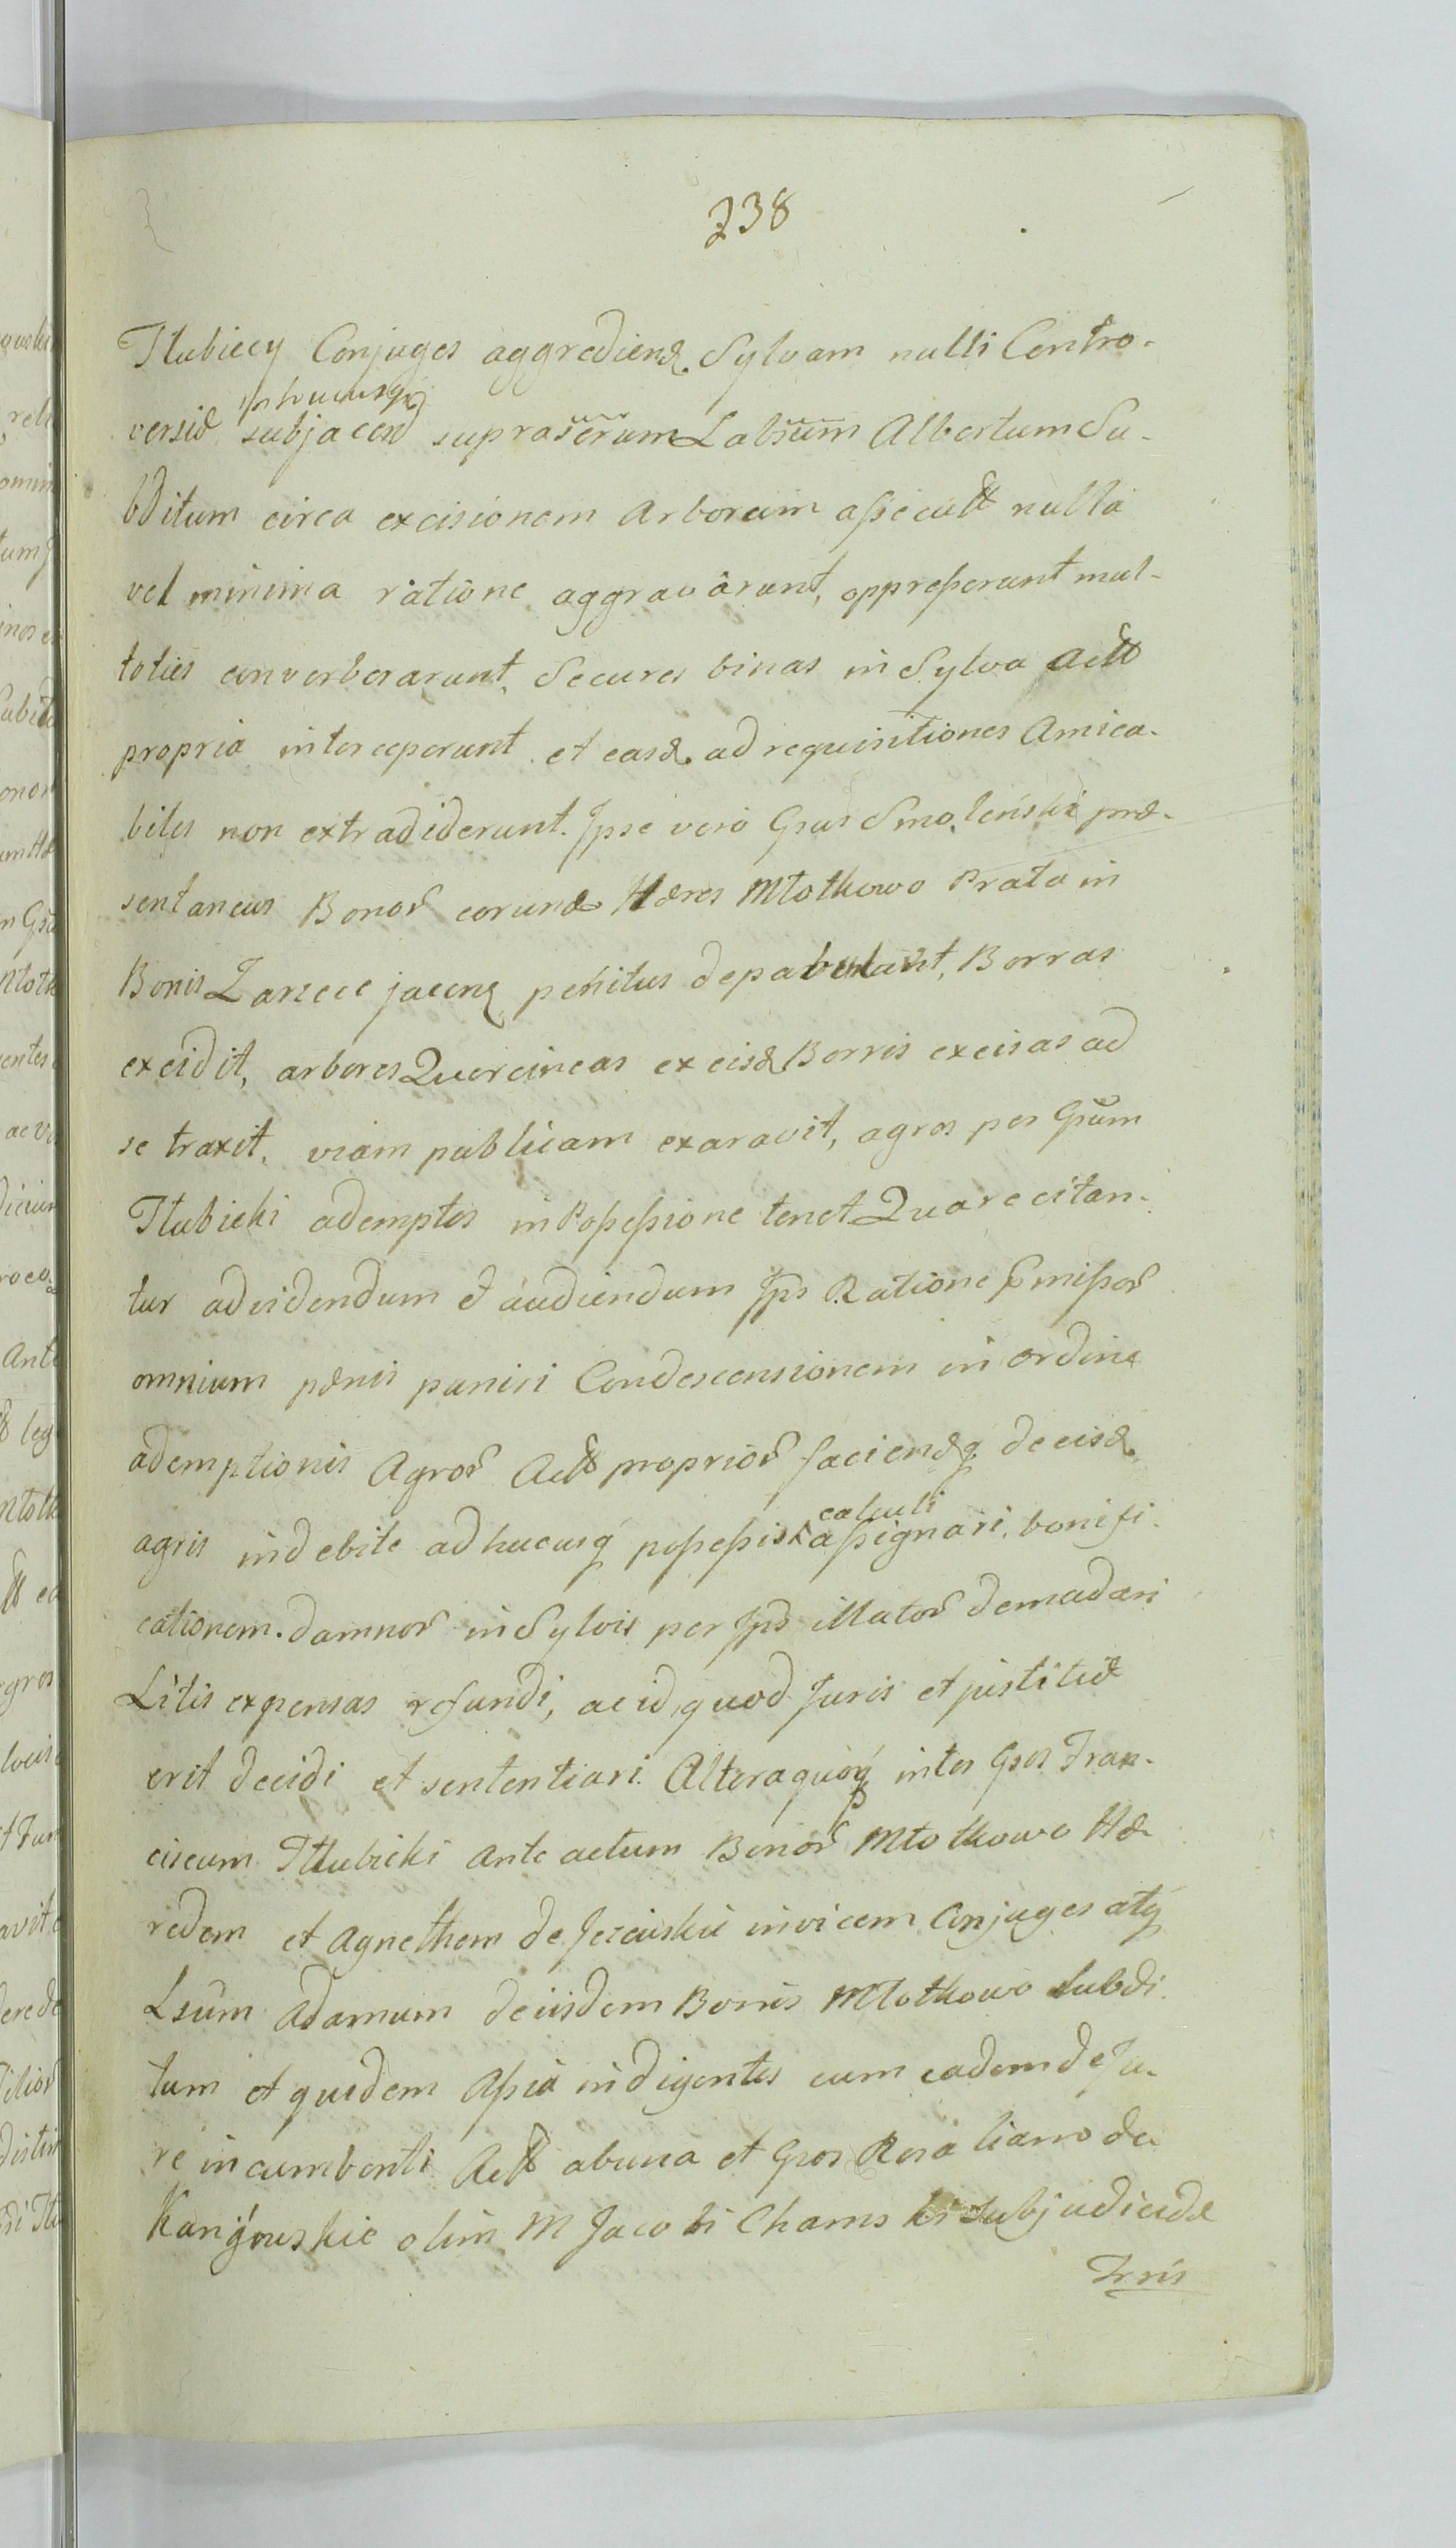 238
Tłubiccy Conjuges aggrediend. Sylvam nulli Contro-
adhucusq
versiæ subjacen suprascrum Labsum Albertum Su-
bditum circa excisionem Arborum assecutt nulla
vel minima ratione aggravârunt, oppresserunt mul-
toties converberarunt, Secures binas in Sylva Actt
propria interceperunt et easd. ad requisitiones Amica-
biles non extradiderunt. Ipse vero Gsus Smoleński præ-
sentaneus Bonor eorund Hæres Młotkowo Prata in
Bonis Zarzece jacen penitus depabulavit, Borras
excidit, arbores Quercineas ex eisd Borris excisas ad
se traxit, viam publicam exaravit, agros per Gsum
Tłubicki ademptos in Possessione tenet Quare citan-
tur ad videndum et audiendum Ips Ratione Pmissor
omnium pænis puniri Condescensionem in ordine
ademptionis Agror Actt proprior faciendq de eisd.
calculi
agris indebite adhucusq possessis assignari, bonifi-
cationem. damnor in Sylvis per Ips illator demadari
Litis expensas refundi, ac id, quod Juris et justitiæ
erit decidi et sententiari. Alteraquoq inter Gsos Fran-
ciscum Tłubicki Ante actum Bonor Młotkowo Hæ-
redem et Agnethem de Jerciuskie invicem Conjuges atq
Lsum Adamum de iisdem Bonis Młotkowo Subdi-
tum et quidem Assia indigentes cum eadem de Ju-
re incumbenti Actt ab una et Gsos Rosaliam de
olim M Jacobi Chamski Subjudicidæ
Trris